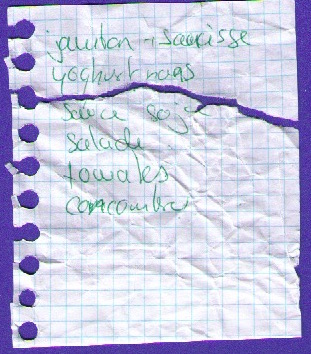 jambon - saucisse
yoghurt
sauce soja
salade
tomates
concombre